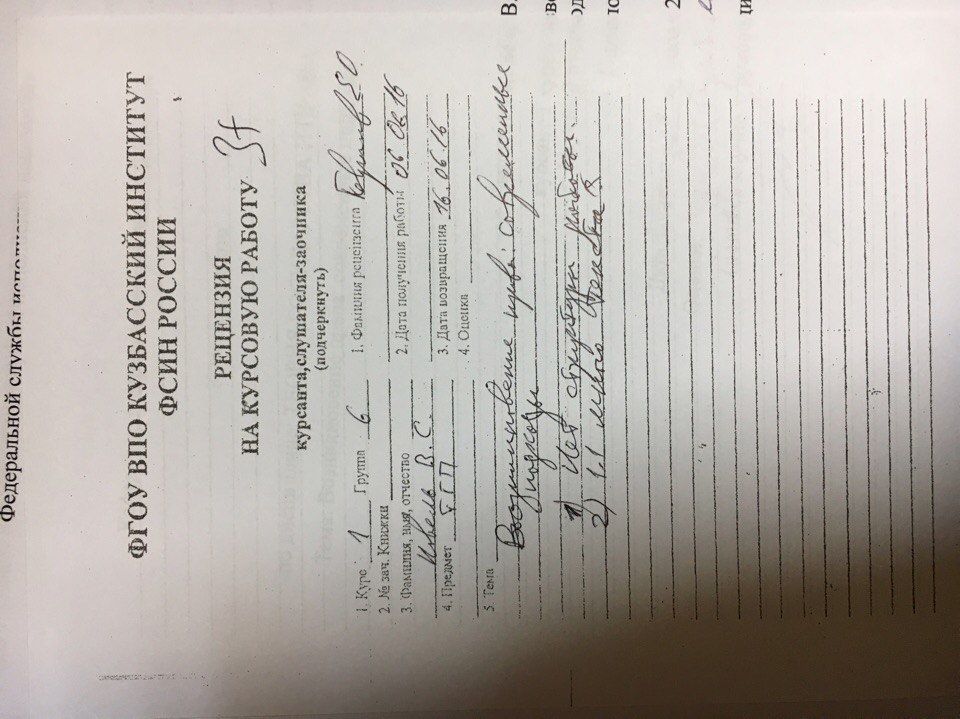 Федеральной службы
ФГОУ ВПО КУЗБАССКИЙ ИНСТИТУТ
ФСИН РОССИИ
РЕЦЕНЗИЯ
НА КУРСОВУЮ РАБОТУ
курсанта,слушателя-заочника
(подчеркнуть)
1. Курс 1 Группа 6
2. № зач. Книжки
3. Фамилия, имя, отчество
В. С.
4. Предмет ТГП
1. Фамилия рецензента
2. Дата получения работы 06 06 16
3. Дата возвращения 16.06.16
4. Оценка
5. Тема Возникновение права: современные
подходы
1) Нет структуры работы.
2) 1.1 много